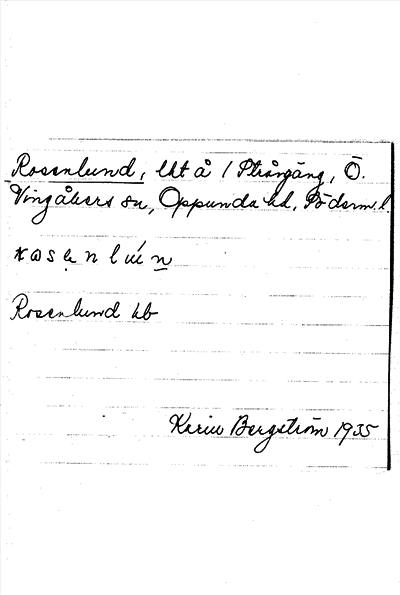 Rosenlund, lht å 1 Strångäng, Ö.
Vingåkers sn, Oppunda hd, Söderm. l.
Rosenlund kb
Karin Bergström 1935